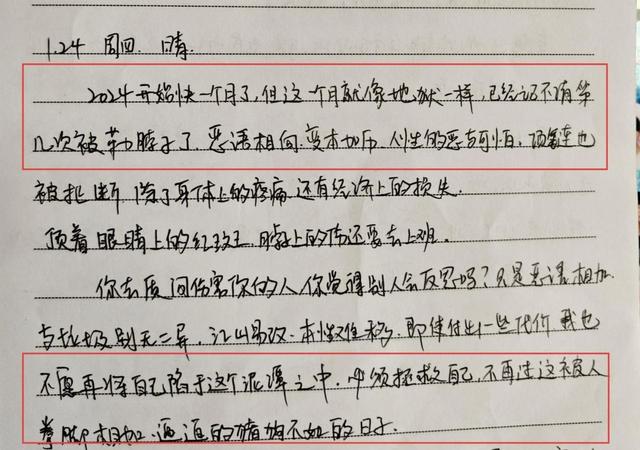 1.24 周四. 晴.
2024开始快一个月了,但这一个月就像地狱一样,已经记不清第
几次被勒脖子了.恶语相向.变本加厉.人性的恶毒可怕.项链也
被扯断 除了身体上的疼痛 还有经济上的损失.
顶着眼睛上的红斑,脖子上的伤还要去上班.
你去质问伤害你的人你觉得别人会反思吗?只是恶语相加
与垃圾别无二异,江山易改.本性难移.即使付出一些代价 我也
不愿再将自己陷于这个泥潭之中.必须拯救自己,不再过这被人
拳脚相加.逼迫的猪狗不如的日子.